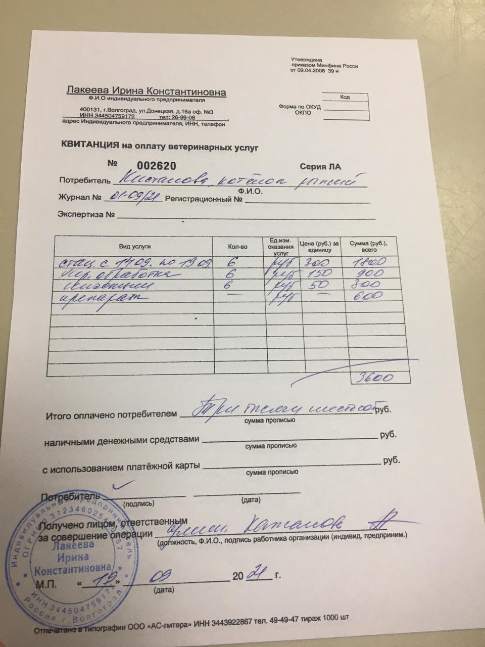 Утверждена
приказом Минфина Росси
от 09.04.2008 39 н
Лакеева Ирина Константиновна
Ф.И.О индивидуального предпринимателя
400131, г.Волгоград, ул.Донецкая, д.16а оф. №3
ИНН 344504759172 тел: 26-99-08
адрес Индивидуального предпринимателя, ИНН, телефон
Код
Форма по ОКУД
ОКПО
КВИТАНЦИЯ на оплату ветеринарных услуг
№ 002620 Серия ЛА
Потребитель котёнок рыжий
Ф.И.О.
Журнал № 01-09/21 Регистрационный №
Экспертиза №
Вид услуги Кол-во Ед.изм. оказания услуг Цена (руб.) за единицу Сумма (руб.), всего
стац с 14.09. по 19.09 6 руб 300 1800
обработка 6 руб 150 900
инъекции 6 руб 50 300
препарат — руб — 600
3600
Итого оплачено потребителем Три тысячи шестьсот руб.
сумма прописью
наличными денежными средствами руб.
сумма прописью
с использованием платёжной карты руб.
сумма прописью
Потребитель
(подпись) (дата)
Получено лицом, ответственным
за совершение операции
(должность, Ф.И.О., подпись работника организации (индивид. предприним.)
М.П. "19" 09 2021 г.
(дата)
Индивидуальный предприниматель
Лакеева
Ирина
Константиновна
ИНН 344504759172
Россия г.Волгоград
Отпечатано в типографии ООО «АС-литера» ИНН 3443922867 тел. 49-49-47 тираж 1000 шт